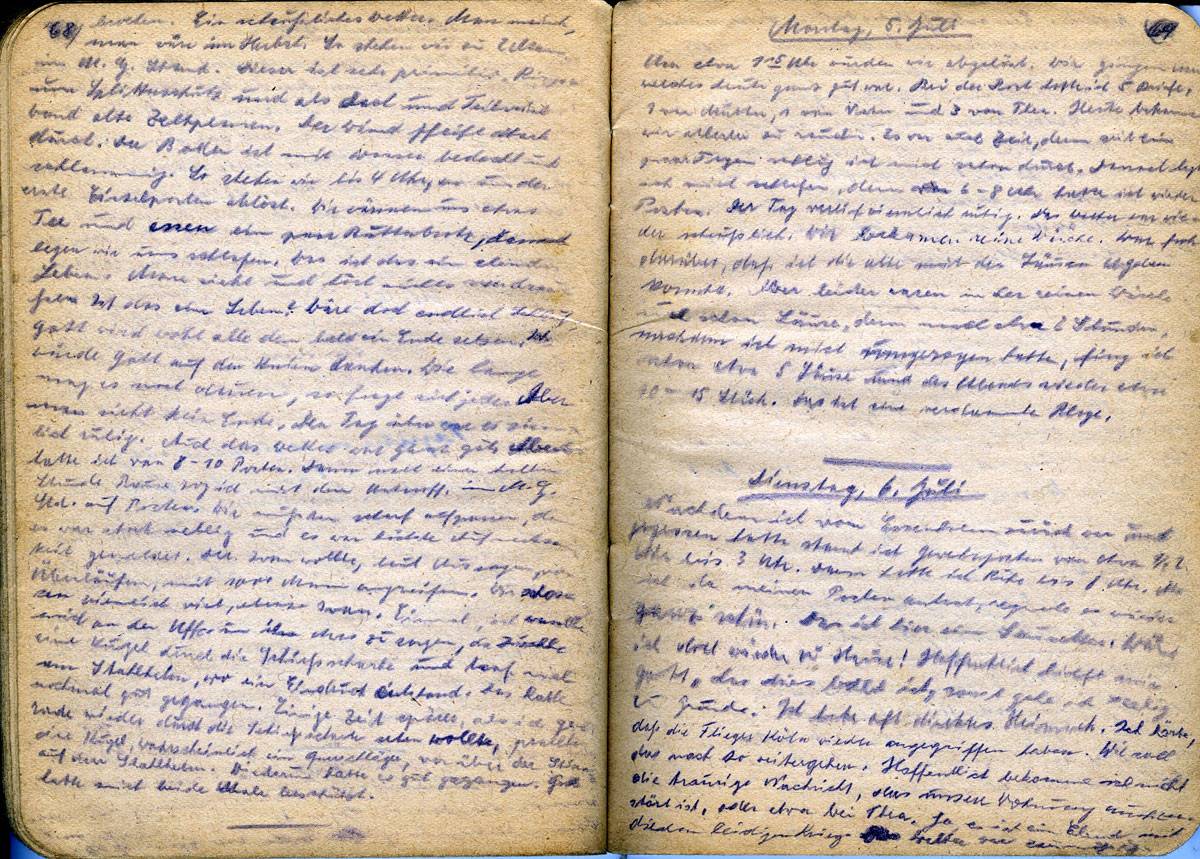 68)
beoten. Ein scheußliches Wetter. Man meint,
man wäre im Herbst. So stehen wir zu
im M. G. Stand. Dieser ist sehr primitiv.
zum Splitterschutz und als
alte Zeltplanen. Der Wind pfeift
durch. Der Boden ist mit Wasser bedeckt und
schlammig. So stehen wir bis 4 Uhr, wo uns der
erste Einzelposten ablöst. Wir wärmen uns etwas
Tee und essen ein paar Butterbrote, danach
legen wir uns schlafen. Was ist das ein
Leben. Man sieht und hört nichts
Ist das ein Leben! Wäre doch endlich
Gott wird wohl alle dem bald ein Ende setzen. Ich
würde Gott auf den Knien danken. Wie lange
mag es noch dauern, so fragt sich jeder. Aber
man sieht kein Ende. Den Tag über war es ziem-
lich ruhig. Auch das Wetter war ganz gut. Abends
hatte ich von 8-10 Posten. Dann nach einer halben
Stunde Pause zog ich mit dem Unteroff. im M. G.
Std. auf Posten. Wir mußten scharf aufpassen, denn
es war stark neblig und es war höchste Aufmerksam-
keit geboten. Der Iwan wollte, laut Aussagen von
Überläufern, mit 1000 Mann angreifen. Wir schos-
sen ziemlich viel, ebenso Iwan. Einmal, ich wandte
mich an den Uffz. um ihm etwas zu sagen, da zischte
eine Kugel durch die Schießscharte und traf mich
am Stahlhelm, wo ein Eindruck entstand. Das hatte
nochmal gut gegangen. Einige Zeit später, als ich gera-
de wieder durch die Schießscharte sehen wollte, prallte
eine Kugel, wahrscheinlich ein Querschläger, vor über der Stirn
auf den Stahlhelm. Wiederum hatte es gut gegangen. Gott
hatte mich beide Male beschützt.
69)
Montag, 5. Juli
Um etwa 1 15 Uhr wurden wir abgelöst. Wir gingen
welches heute ganz gut war. Bei der Post hatte ich 5 Briefe,
1 von Mutter, 1 von Vater und 3 von Thea. Heute bekamen
wir
paar Tagen ich mich schon durch. Danach legte
ich mich schlafen, denn von 6-8 Uhr hatte ich wieder
Posten. Der Tag verlief ziemlich ruhig. Das Wetter war wie-
der scheußlich. Wir bekamen reine Wäsche. War froh
darüber, daß ich die alte mit den Läusen abgeben
konnte. Aber leider waren in der reinen Wäsche
auch schon Läuse, denn nach etwa 2 Stunden,
nachdem ich mich umgezogen hatte, fing ich
schon etwa 5 Läuse und des Abends wieder etwa
10-15 Stück. Das ist eine verdammte Plage.
Dienstag, 6. Juli
Nachdem ich vom Essenholen zurück war und
gegessen hatte stand ich Grabenposten von etwa 1/2 2
Uhr bis 3 Uhr. Dann hatte ich Ruhe bis 8 Uhr. Als
ich da meinen Posten antrat, regnete es wieder
ganz schön. Das ist hier ein Sauwetter. Wäre
ich doch wieder zu Hause! Hoffentlich hilft mir
Gott, das dies bald ist, sonst gehe ich seelig
zu Grunde. Ich habe oft direktes Heimweh. Ich hörte,
daß die Flieger Köln wieder angegriffen haben. Wie soll
das noch so weitergehen. Hoffentlich bekomme ich nicht
die traurige Nachricht, das unsere Wohnung auch zer-
stört ist, oder etwa bei Thea. Ja es ist ein Elend mit
diesem leidigen Krieg.